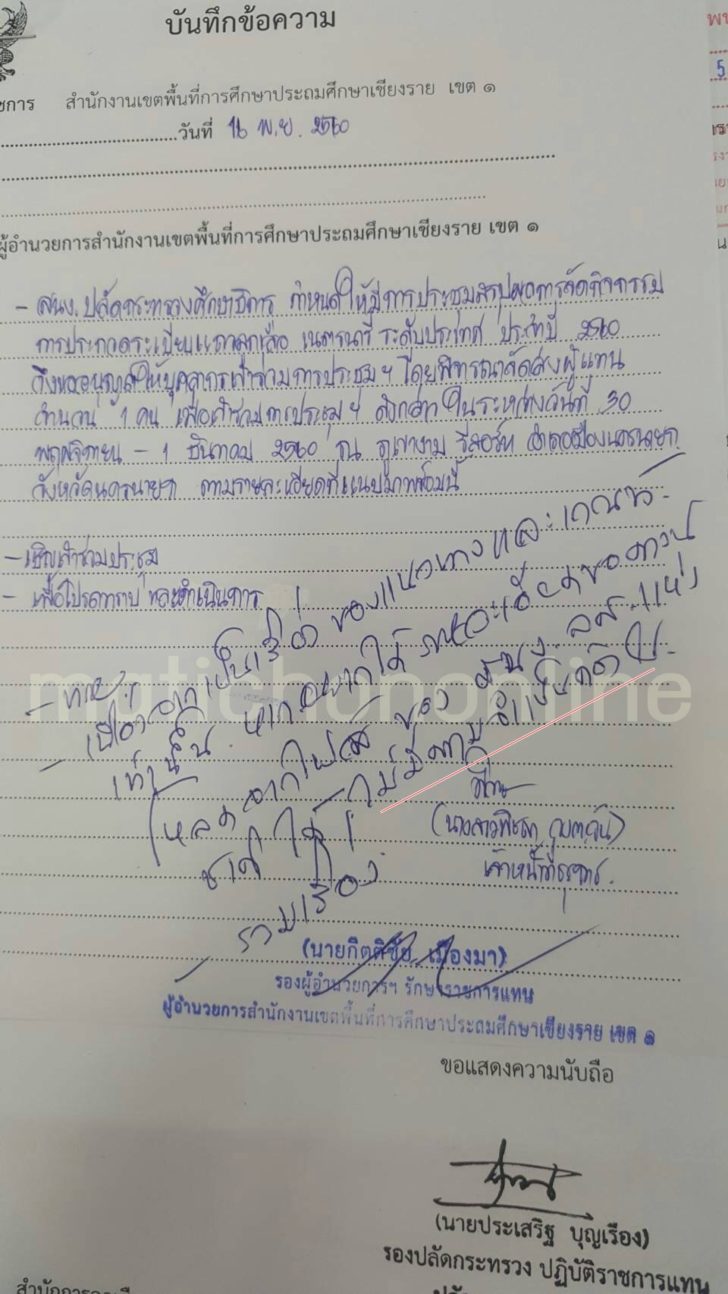 บันทึกข้อความ
สำนักงานเขตพื้นที่การศึกษาประถมศึกษาเชียงราย เขต ๑
วันที่ 16 พ.ย. 2560
ผู้อำนวยการสำนักงานเขตพื้นที่การศึกษาประถมศึกษาเชียงราย เขต ๑
- สนง.ปลัดกระทรวงศึกษาธิการ กำหนดให้มีการประชุมสรุปผลการจัดกิจกรรม
การประกวดระเบียบแถวลูกเสือ เนตรนารี ระดับประเทศ ประจำปี 2560
จึงขออนุญาตให้บุคลากรเข้าร่วมการประชุมฯ โดยพิจารณาจัดส่งผู้แทน
จำนวน 1 คน เพื่อเข้าร่วมการประชุมฯ ดังกล่าว ในระหว่างวันที่ 30
พฤศจิกายน - 1 ธันวาคม 2560 ณ ภูเขางาม รีสอร์ท อำเภอเมืองนครนายก
จังหวัดนครนายก ตามรายละเอียดที่แนบมาพร้อมนี้
- เชิญเข้าร่วมประชุม
- เพื่อโปรดทราบ และดำเนินการ
- ทราบ
- เนื่องจากเป็นเรื่อง ของแนวทางและเกณฑ์
เท่านั้น หากอยากได้ รายละเอียดของงานนี้
โหลดจากเว็บไซต์ ของ
ชาติ ได้ ไม่มีความจำเป็นต้องไป
รวมเรื่อง
matichononline
เจ้าหน้าที่ธุรการ
(นายกิตติชัย เมืองมา)
รองผู้อำนวยการฯ รักษาราชการแทน
ผู้อำนวยการสำนักงานเขตพื้นที่การศึกษาประถมศึกษาเชียงราย เขต ๑
ขอแสดงความนับถือ
(นายประเสริฐ บุญเรือง)
รองปลัดกระทรวง ปฏิบัติราชการแทน